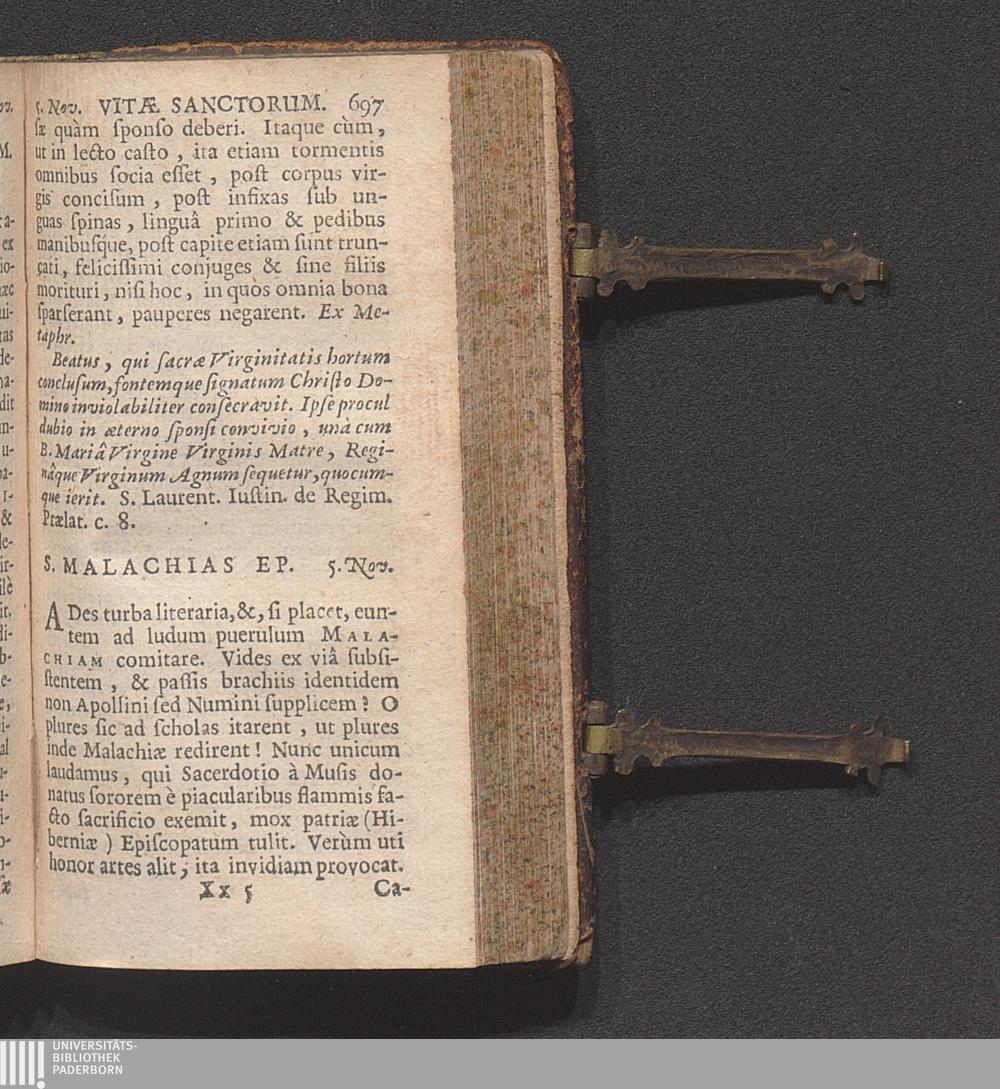 5. Nov. VITÆ SANCTORUM. 697
ſæ quàm ſponſo deberi. Itaque cùm,
ut in lecto caſto, ita etiam tormentis
omnibus ſocia eſſet, poſt corpus vir-
gis conciſum, poſt infixas ſub un-
guas ſpinas, linguâ primo & pedibus
manibuſque, poſt capite etiam ſunt trun-
çati, feliciſſimi conjuges & ſine filiis
morituri, niſi hoc, in quòs omnia bona
ſparſerant, pauperes negarent. Ex Me-
taphr.
Beatus, qui ſacræ Virginitatis hortum
concluſum, fontemque ſignatum Chriſto Do-
mino inviolabiliter conſecravit. Ipſe procul
dubio in æterno ſponſi convivio, unà cum
B. Mariâ Virgine Virginis Matre, Regi-
nâque Virginum Agnum ſequetur, quocum-
que ierit. S. Laurent. Iuſtin. de Regim.
Prælat. c. 8.
S. MALACHIAS EP. 5. Nov.
ADes turba literaria, &, ſi placet, eun-
tem ad ludum puerulum MALA-
CHIAM comitare. Vides ex viâ ſubſi-
ſtentem, & paſſis brachiis identidem
non Apollini ſed Numini ſupplicem? O
plures ſic ad ſcholas itarent, ut plures
inde Malachiæ redirent! Nunc unicum
laudamus, qui Sacerdotio à Muſis do-
natus ſororem è piacularibus flammis fa-
cto ſacrificio exemit, mox patriæ (Hi-
berniæ) Epiſcopatum tulit. Verùm uti
honor artes alit, ita invidiam provocat.
Xx 5 Ca-
UNIVERSITÄTS-
BIBLIOTHEK
PADERBORN